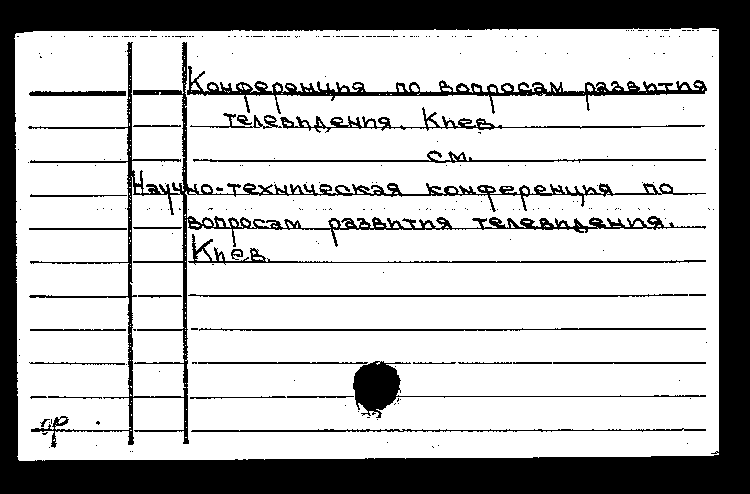 Конференция по вопросам развития
телевидения. Киев.
см.
Научно-техническая конференция по
вопросам развития телевидения.
Киев.
ор